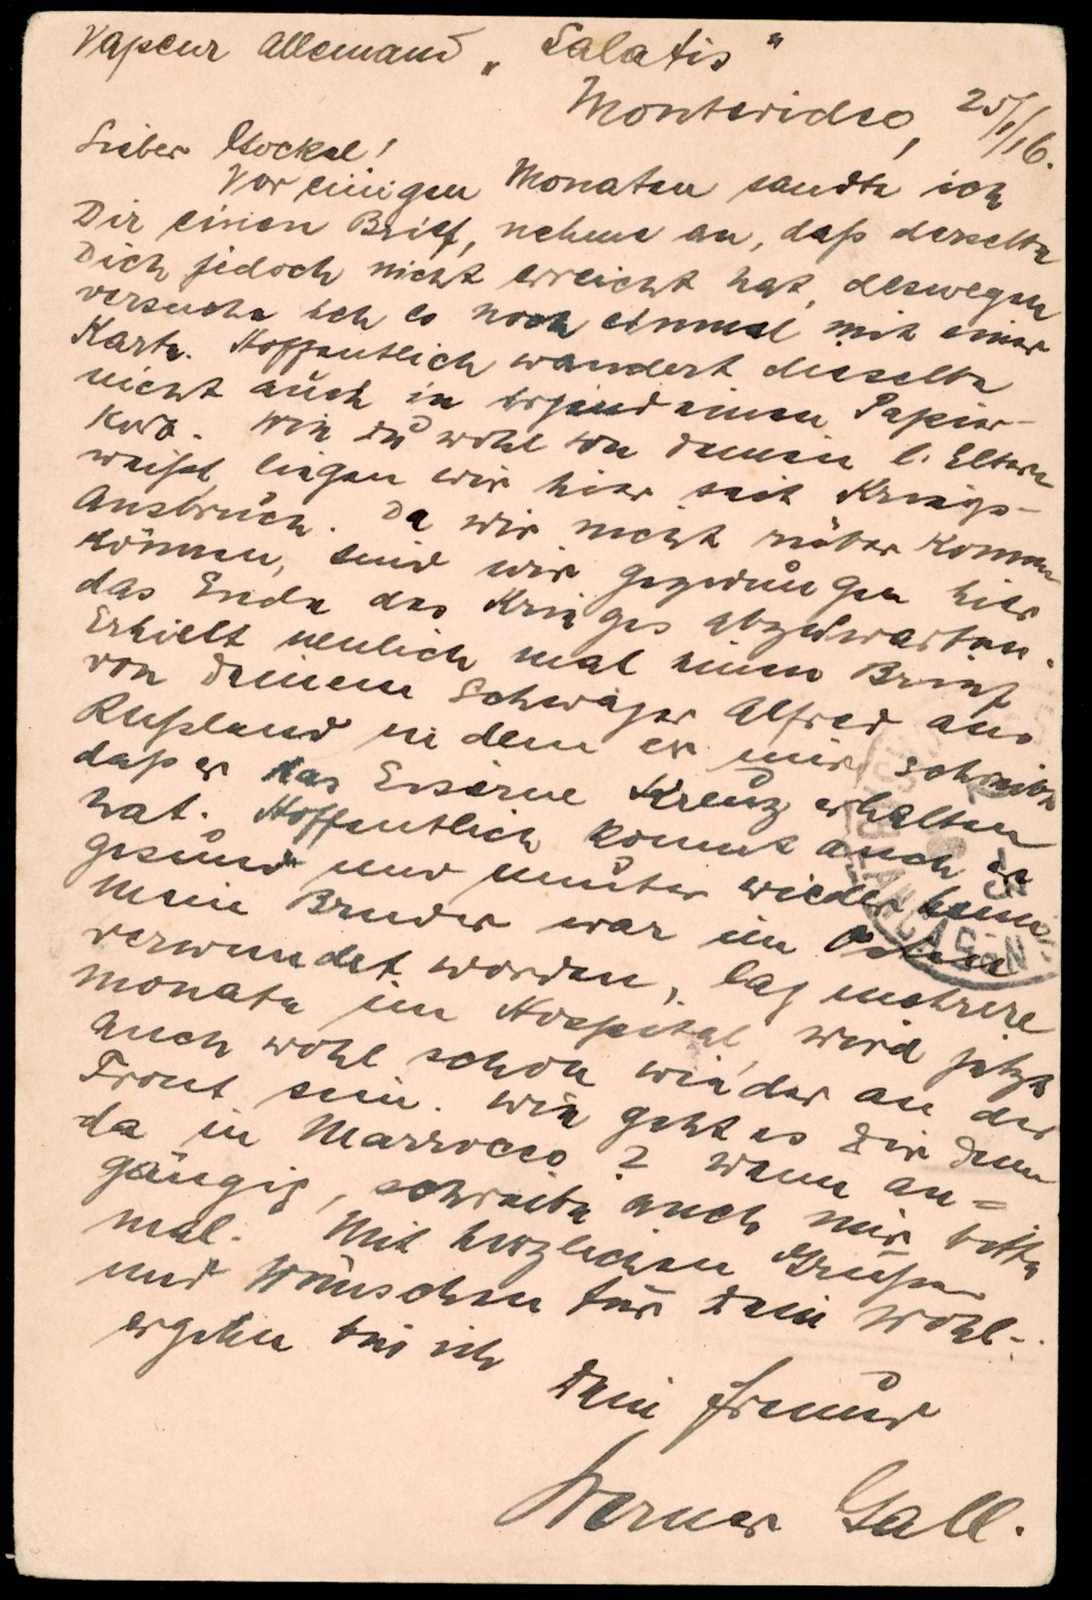 Vapeur Allemand „Salatis"
Montevideo, 25/1/16.
Lieber Gockel!
Vor einigen Monaten sandte ich
Dir einen Brief, nehme an, daß derselbe
Dich jedoch nicht erreicht hat, deswegen
versuche ich es noch einmal mit einer
Karte. Hoffentlich wandert dieselbe
nicht auch in irgend einen Papier-
Korb. Wie Du wohl von Deinen l. Eltern
weißt, liegen wir hier seit Kriegs-
Ausbruch. Da wir nicht rüber kommen
können, sind wir gezwungen hier
das Ende des Krieges abzuwarten.
Erhielt neulich mal einen Brief
von Deinem Schwager Alfred aus
Rußland in dem er mir schreibt
daß er das Eiserne Kreuz erhalten
hat. Hoffentlich kommt auch er
gesund und munter wieder heim
Mein Bruder war im Osten
verwundet worden, lag mehrere
Monate im Hospital, wird jetzt
auch wohl schon wieder an der
Front sein. Wie geht es Dir denn
da in Marrocco? Wenn an=
gängig, schreibe auch mir bitte
mal. Mit herzlichen Grüßen
und Wünschen für Dein Wohl-
ergehen bin ich
Dein Freund
Werner Gall.